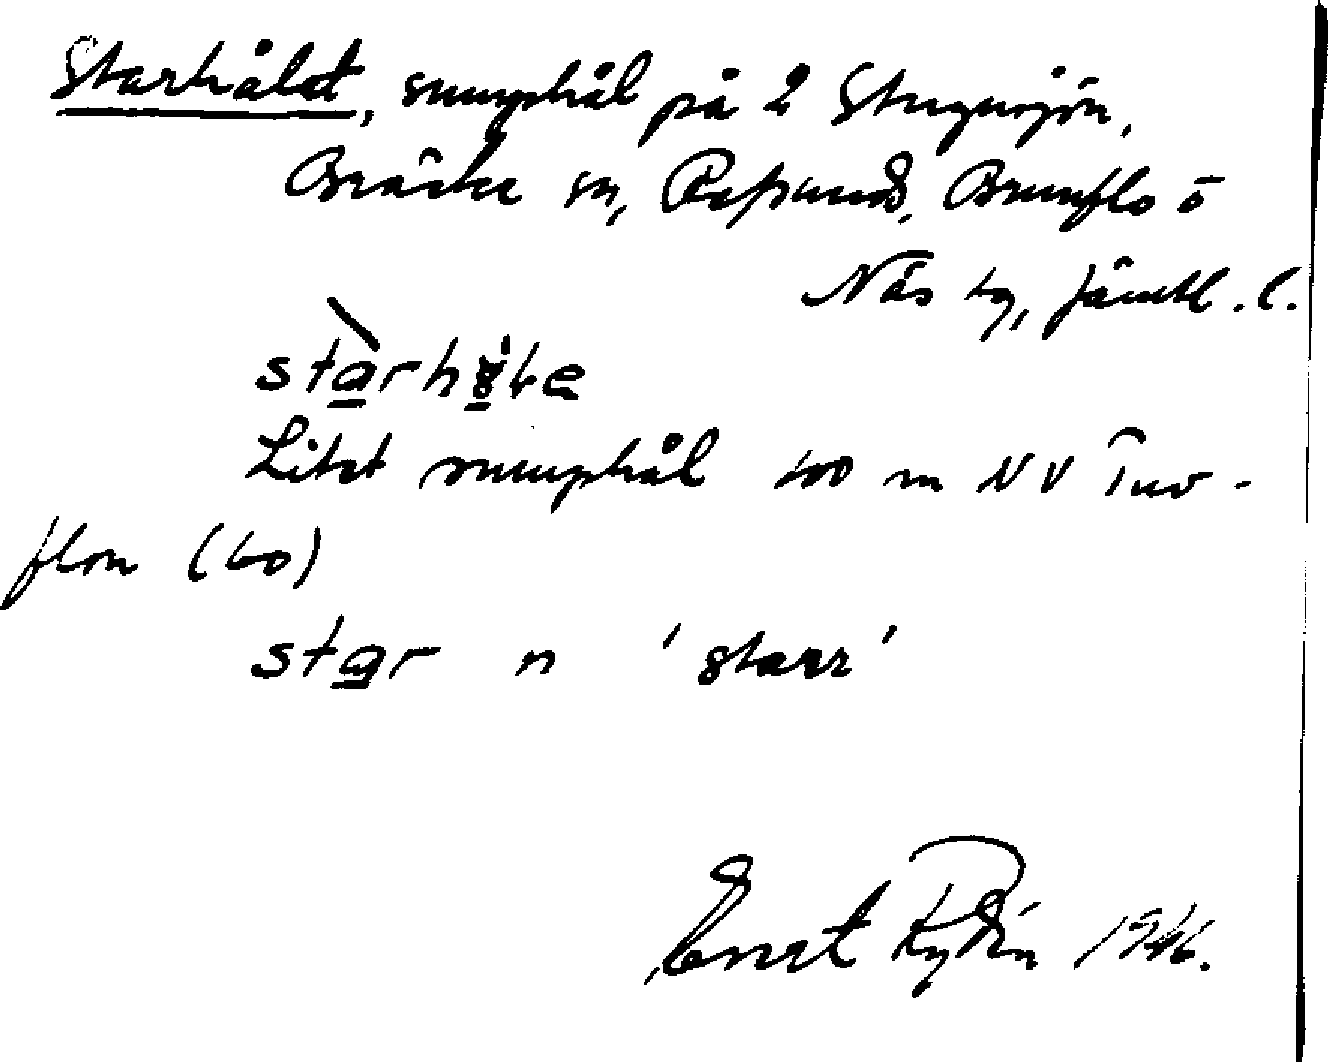 Starhålet, sumphål på 2 Stugusjön,
Bräcke sn, Refsund, Brunflo o
Näs tg, Jämtl. l.
starhɵ̇ɫe
Litet sumphål 400 m NV Tuv-
flon (60)
star n 'starr'
Ernst Rydén 1946.